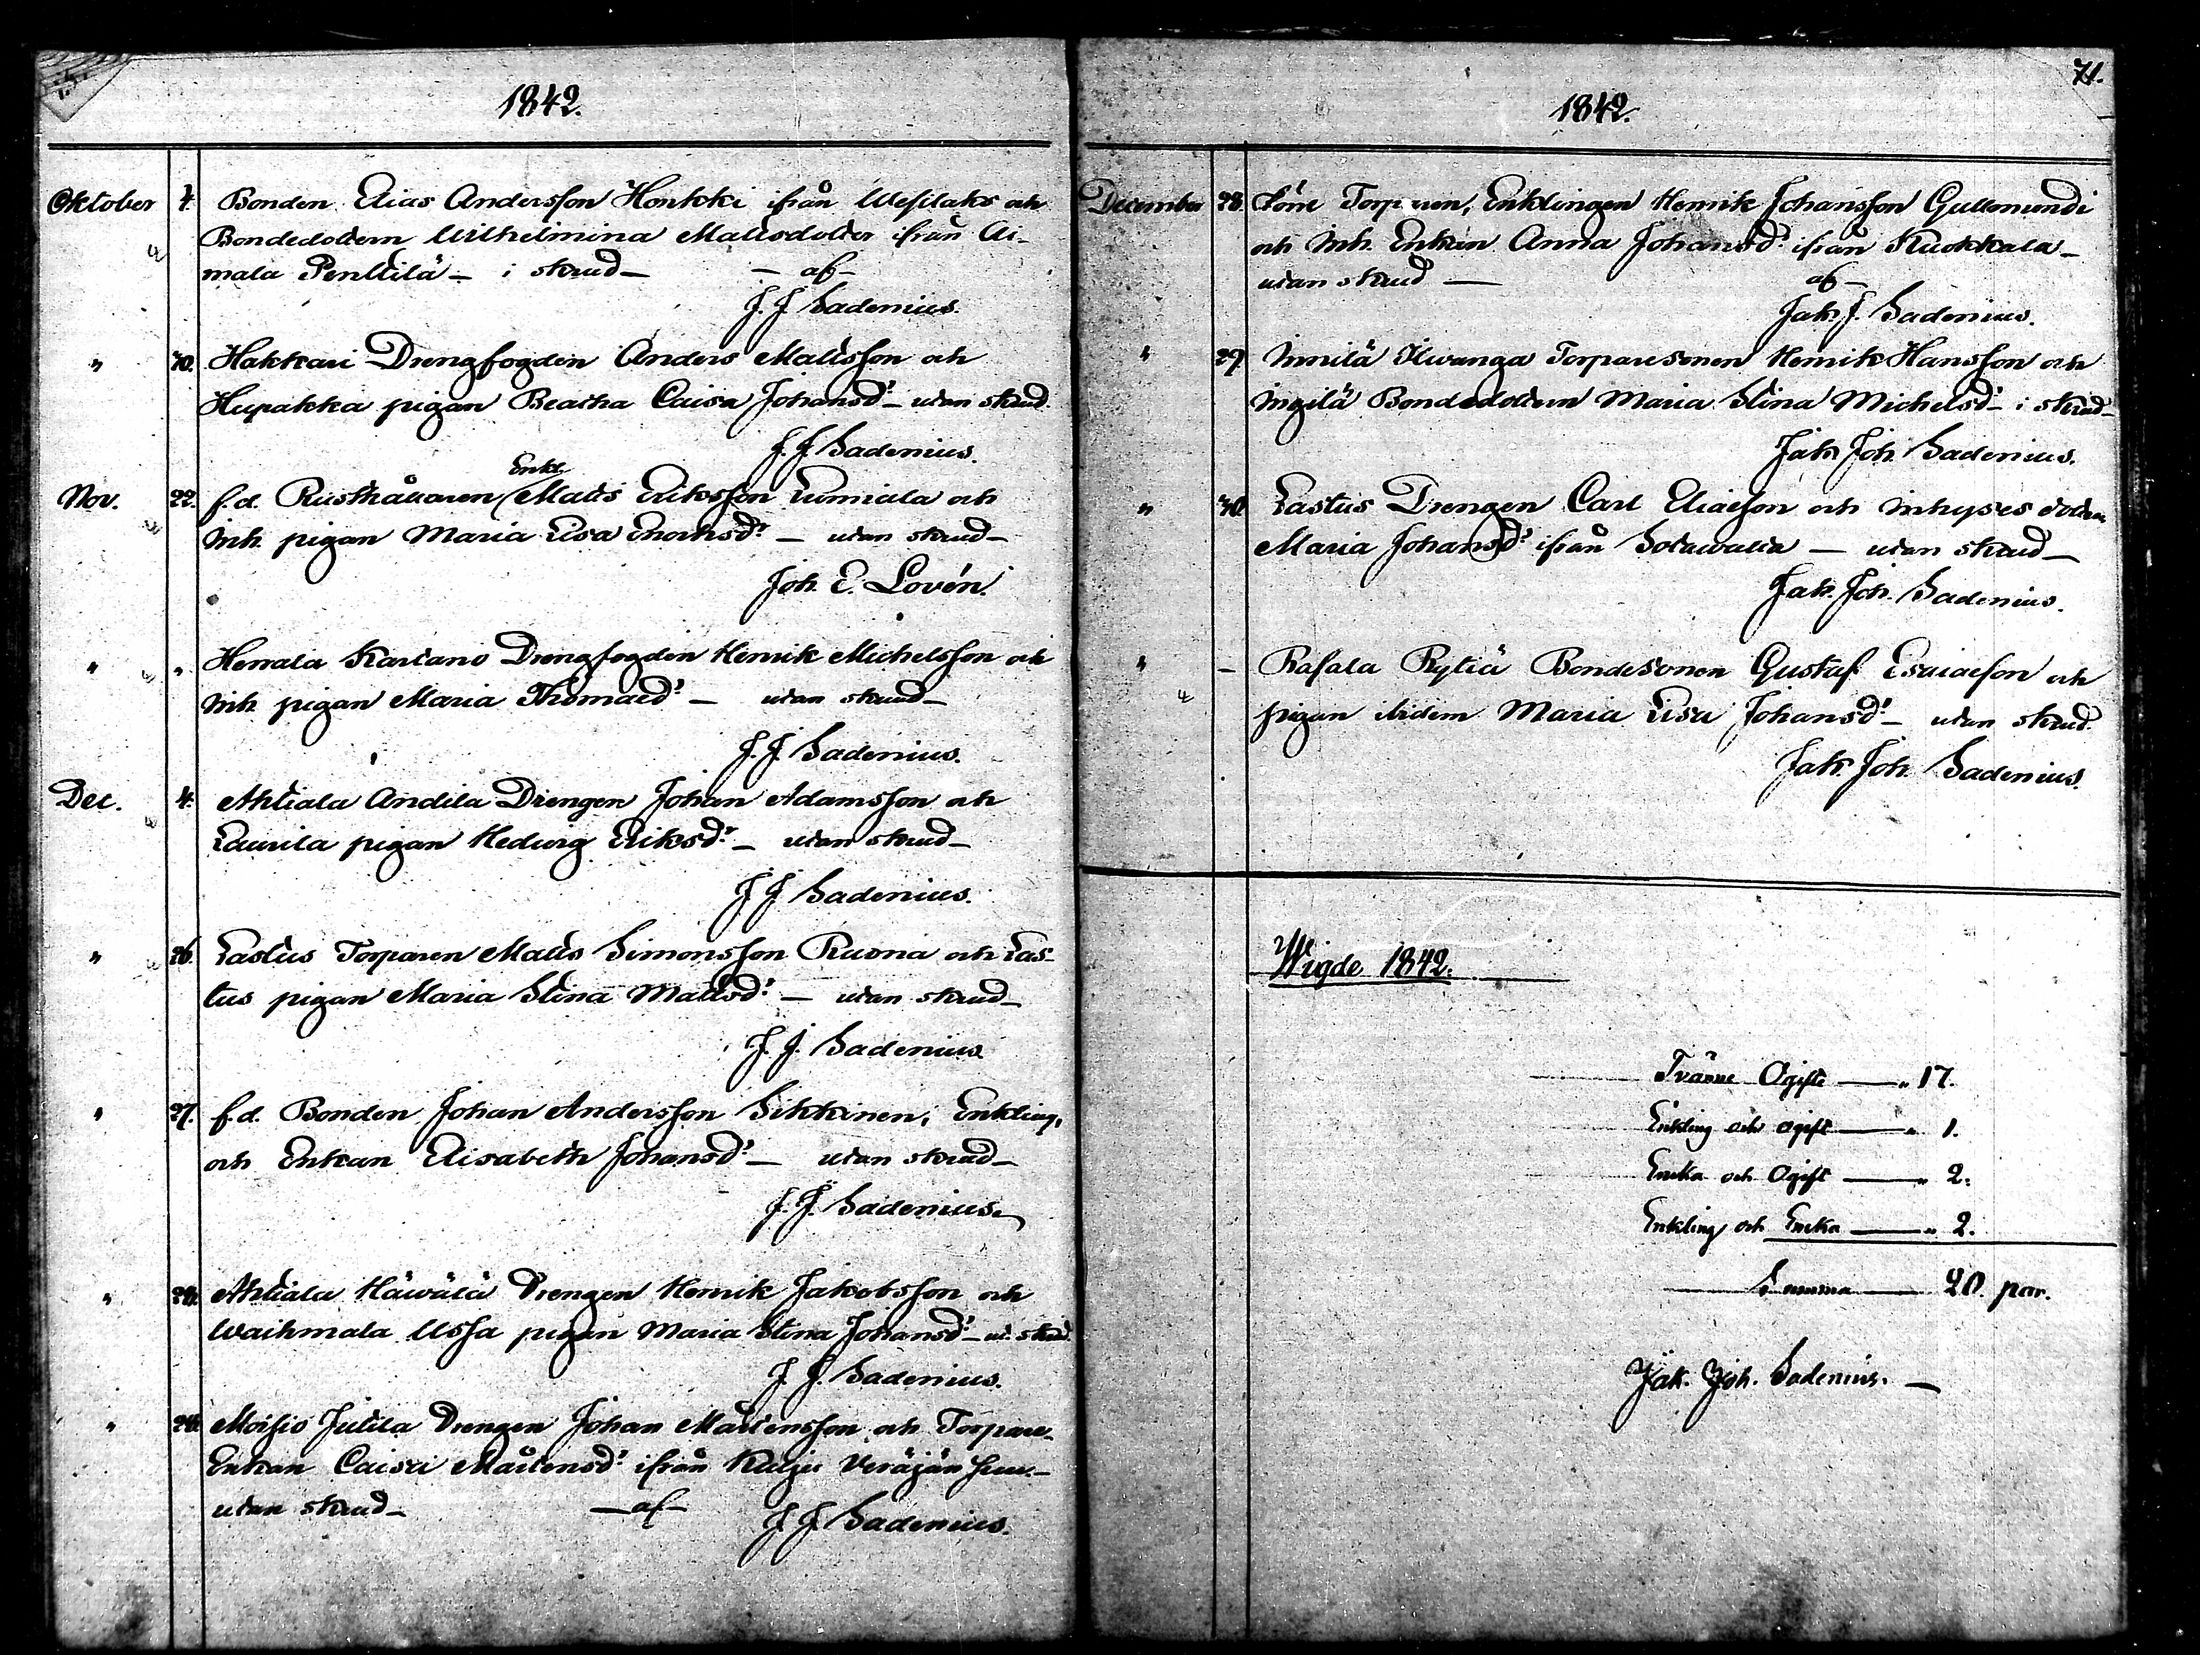 1842.
Oktober 4. Bonden Elias Andersson Honkki ifrån Wesilaks och
Bondedottern Wilhelmina Mattsdotter ifrån Ai-
mala Penttilä – i skrud – – af –
J. J. Sadenius.
" 30. Hakkari Drengfogden Anders Mattsson och
Hupakka pigan Beatha Caisa Johansdr – utan skrud
J. J. Sadenius.
Enkl.
Nov. 22. f.d. Rusthållaren Matts Eriksson Lumiala och
Inh. pigan Maria Lisa Enochsdr – utan skrud –
Joh. E. Lovén.
" " Herrala Kartano Drengfogden Henrik Michelsson och
Inh. pigan Maria Thomasdr – utan skrud –
J. J. Sadenius.
Dec. 4. Ahtiala Andila Drengen Johan Adamsson och
Laurila pigan Hedvig Eriksdr – utan skrud –
J J Sadenius.
" 26. Lastus Torparen Matts Simonsson Ruona och Las-
tus pigan Maria Stina Mattsdr – utan skrud –
J. J. Sadenius
" 27. f.d. Bonden Johan Andersson Sikkinen, Enkling,
och Enkan Elisabeth Johansdr – utan skrud –
J. J. Sadenius.
" 28. Ahtiala Häwälä Drengen Henrik Jakobsson och
Waihmala Ussa pigan Maria Stina Johansdr – ut. skrud.
J. J. Sadenius.
" 28. Moisio Jutila Drengen Johan Mårtensson och Torpare-
Enkan Caisa Mårtensdr ifrån Veräjän
utan skrud – – af –
J J Sadenius.
71.
1842.
December 28. Torparen, Enklingen Henrik Johansson Gullomundi
och Inh. Enkan Anna Johansdr ifrån Kuokkala –
utan skrud – af –
Jak. J. Sadenius.
" 29. Innilä Torparesonen Henrik Hansson och
Ingilä Bondedottern Maria Stina Michelsdr – i skrud –
Jak Joh. Sadenius.
" 30. Lastus Drengen Carl Eliaeson och Inhyses dottern
Maria Johansdr ifrån Sotavalta – utan skrud –
Jak. Joh. Sadenius.
" – Rafala Rytiä Bondesonen Gustaf Esaiaeson och
pigan ibidem Maria Lisa Johansdr – utan skrud.
Jak. Joh. Sadenius.
Wigde 1842.
Tvänne Ogifte — " 17.
Enkling och ogift — " 1.
Enka och Ogift — " 2.
Enkling och Enka — " 2.
Summa — 20. par.
Jak. Joh. Sadenius. –